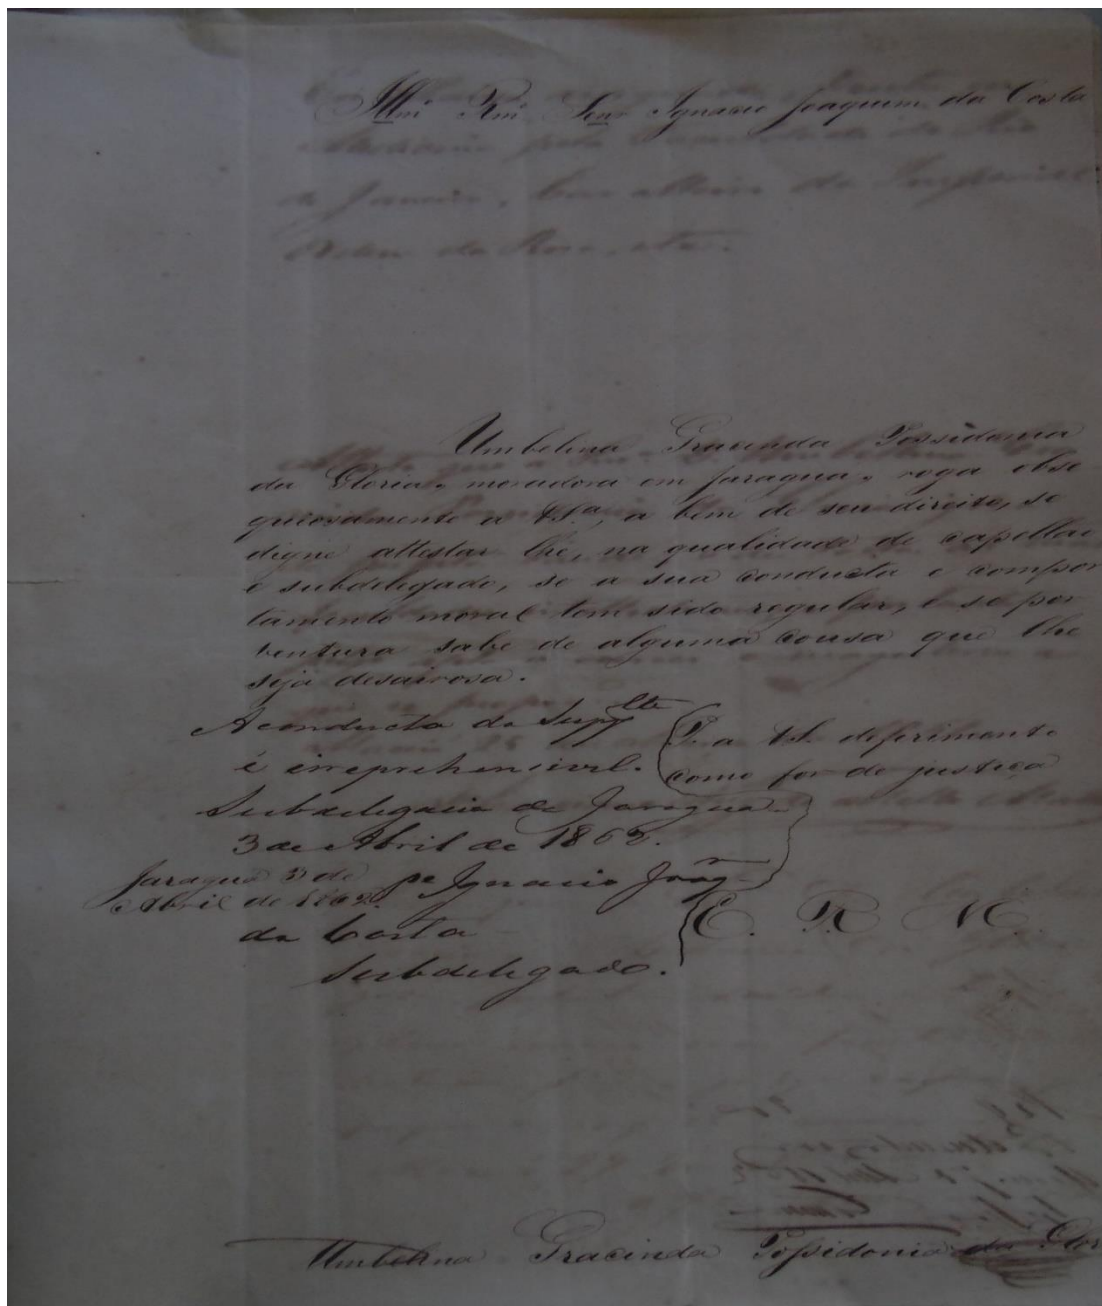 Illmº Rmº Senr Ignacio Joaquim da Costa
Umbelina Gracinda Possidonia
da Gloria, moradora em Jaragua, roga obse
quiosamente a V.Sª, a bem de seu direito, se
digne attestar lhe, na qualidade de capellão
e subdelegado, se a sua conducta e compor
tamento moral tem sido regular, e se por
ventura sabe de alguma cousa que lhe
seja desairosa.
P. a V.S. deferimento
como for de justiça
E. R. M.
A conducta da Supplte
é irreprehencivel.
Subdelegacia de Jaragua
3 de Abril de 1862.
pe Ignacio Joaqm
da Costa
Subdelegado.
Jaragua 3 de
Abril de 1862.
Umbelina Gracinda Possidonia da Glor